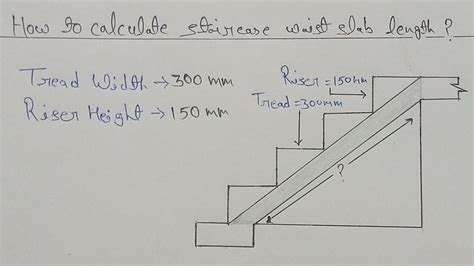 How to calculate staircase waist slab length?
Tread Width → 300 mm
Riser Height → 150 mm
Riser = 150mm
Tread = 300mm
?